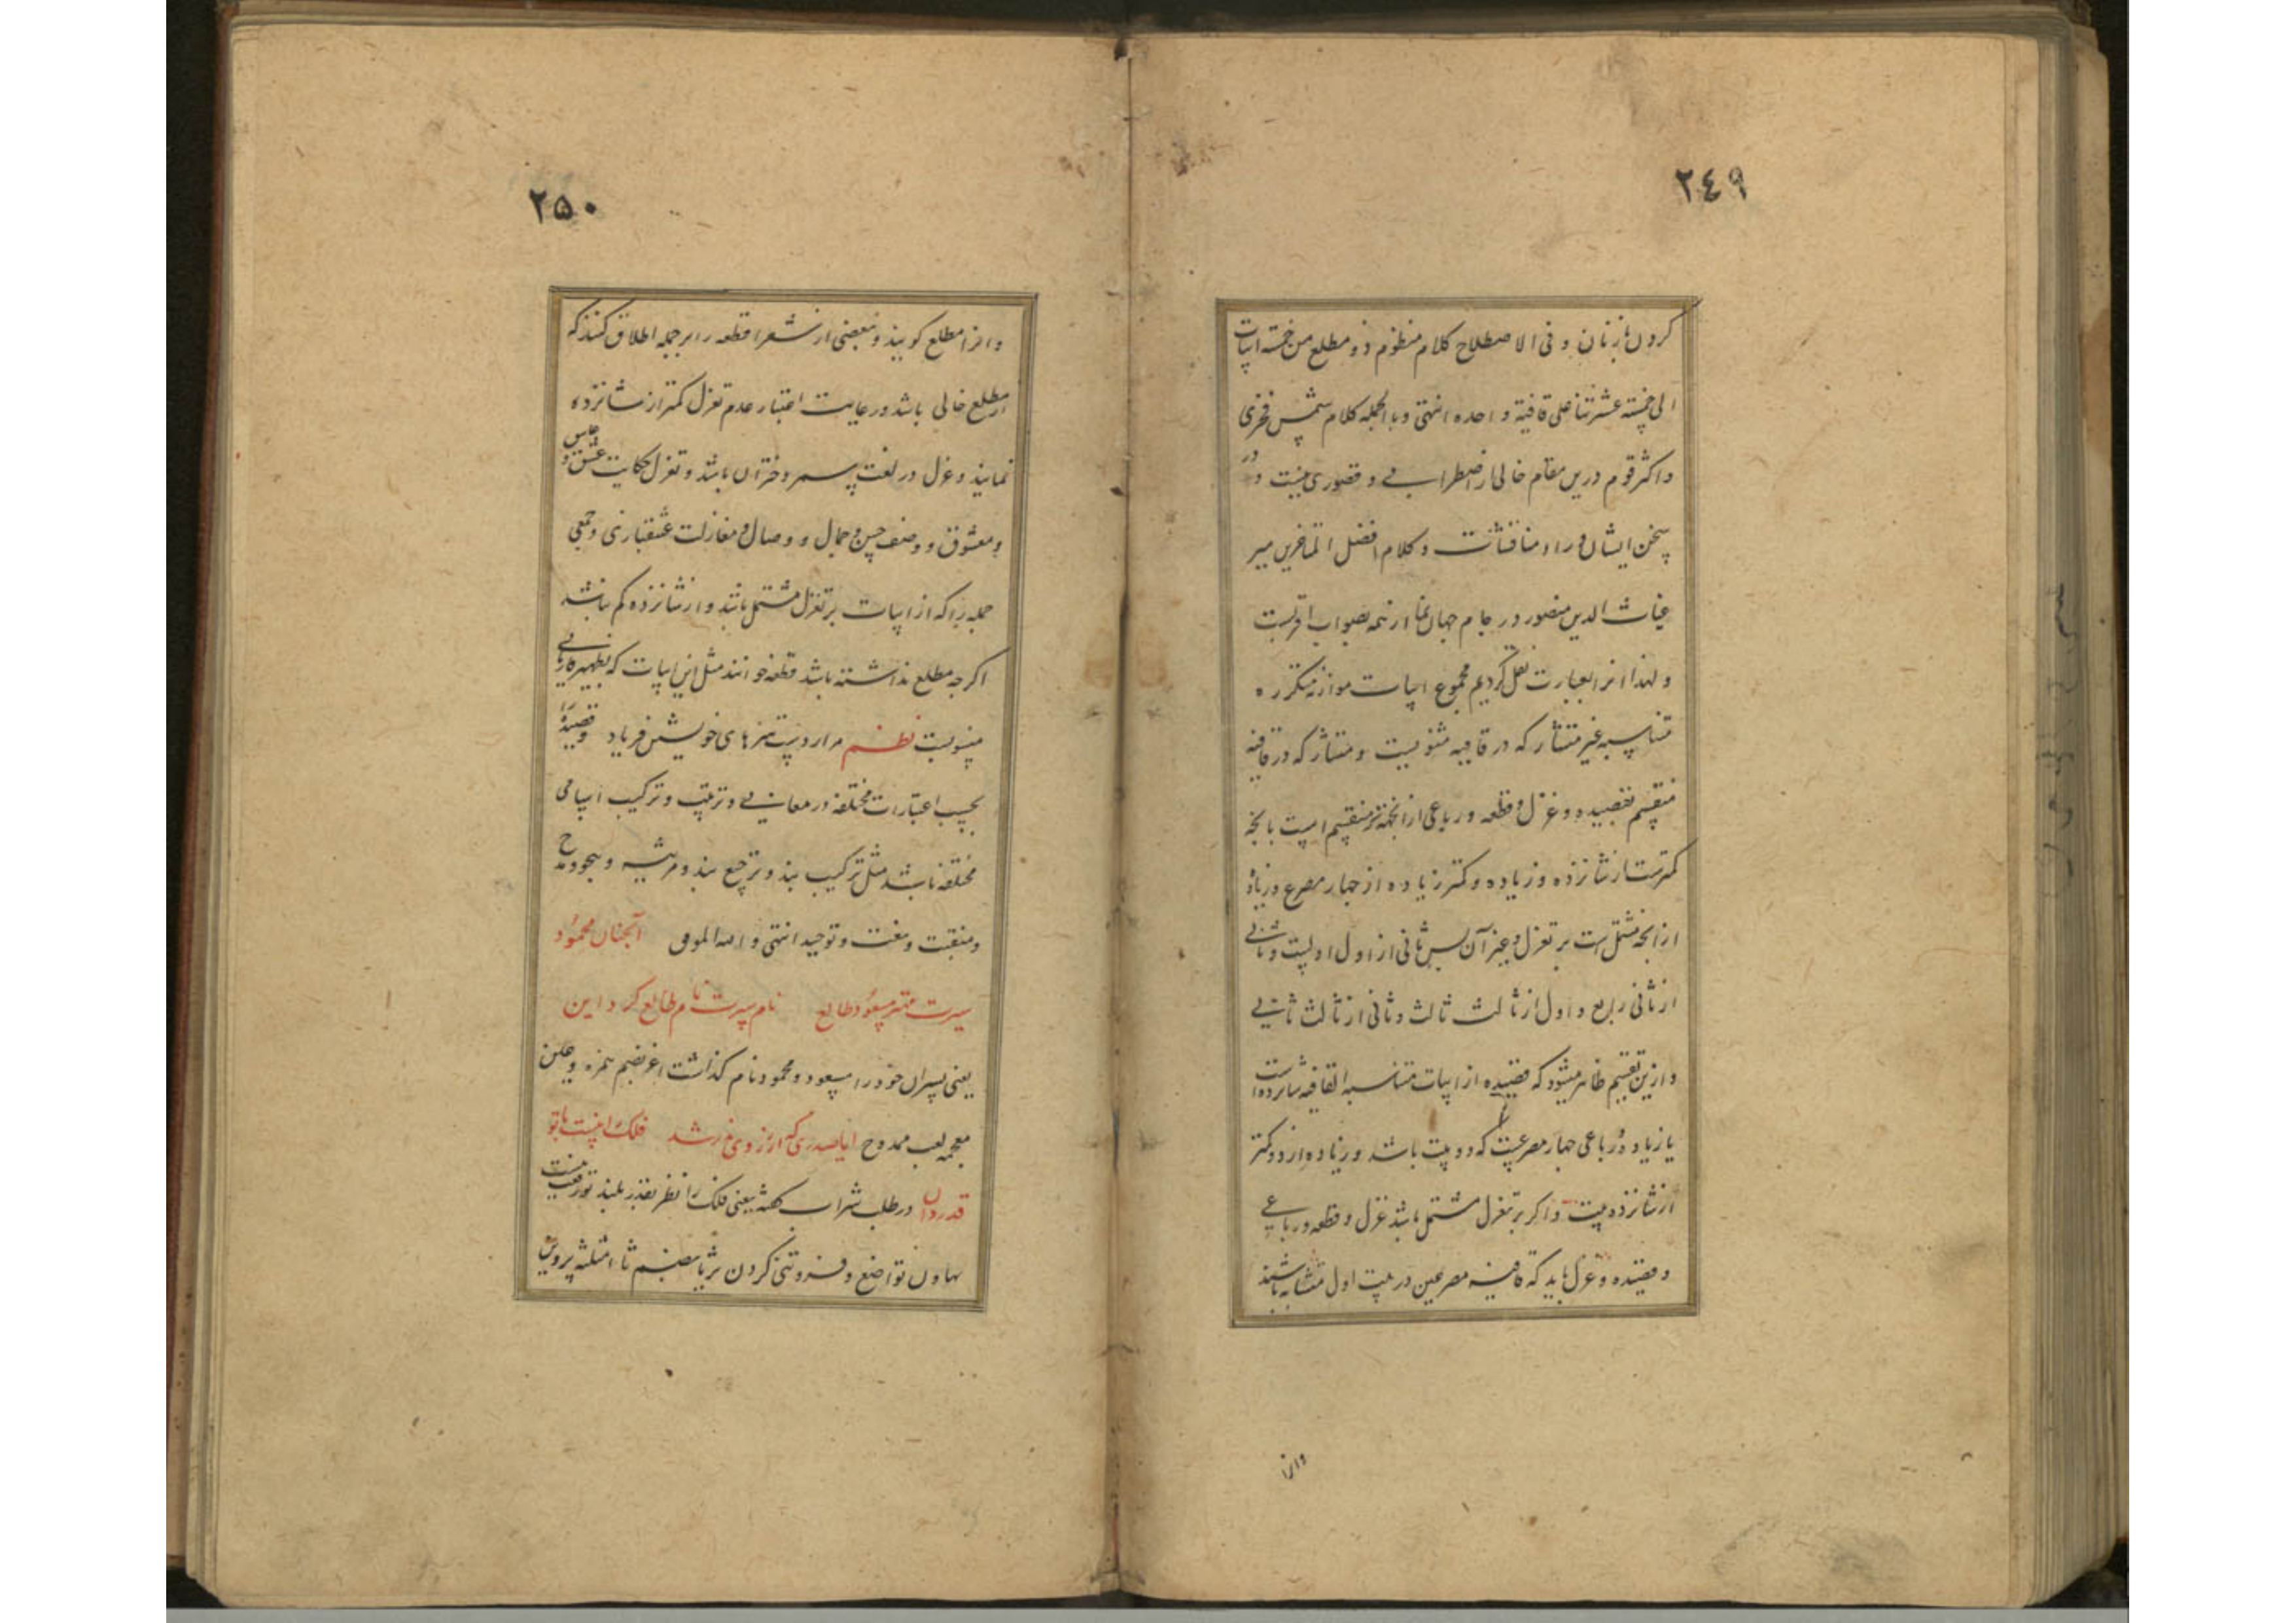 ٢٤٩
كردن با زنان و فی الاصطلاح كلام منظوم ذو مطلع من خمسة ابیات
الی خمسة عشر بیتا علی قافیة واحده انتهی و بالجمله كلام شمس فخری
و اكثر قوم درین مقام خالی از اضطرابی و قصوری نیست و در
سخن ایشان و راه مناقشات و كلام افضل المتاخرین میر
غیاث الدین منصور در جام جهان نما از همه بصواب اقربست
و لهذا از العبارت نقل كردیم مجموع ابیات موازنه متكرره
متناسبه غیر متشارك در قافیه مثنویست و متشارك در قافیه
منقسم بقصیده و غزل و قطعه و رباعی از انجهة كه منقسم است بانچه
كمترست از شانزده و زیاده و كمتر زیاده از چهار مصرع و زیاده
از انچه مشتمل است بر تغزل و غیر آن پس ثانی از اول اولیست و ثانی
از ثانی رابع و اول از ثالث ثالث و ثانی از ثالث ثانی
و ازین تقسیم ظاهر میشود كه قصیده از ابیات متناسبه القافیه شانزده است
یا زیاده و رباعی چهار مصرعیست كه دو بیت باشد و زیاده از دو و كمتر
از شانزده بیت و اگر بر تغزل مشتمل باشد غزل و قطعه و رباعی
و قصیده و غزل باید كه قافیه مصرعین در بیت اول متشابه باشند
وانرا
٢٥٠
و انرا مطلع كویند و بعضی از شعرا قطعه را بر جمله اطلاق كنند كه
از مطلع خالی باشد و رعایت اعتبار عدم تغزل كمتر از شانزده
نمایند و غزل در لغت پسر و دختران باشد و تغزل حكایت عشق و عاشق
و معشوق و وصف حسن و جمال و وصال و مغازلت عشقبازی و جمعی
جمله را كه از ابیات بر تغزل مشتمل باشد و از شانزده كم باشد
اكر چه مطلع نداشته باشد قطعه خوانند مثل این ابیات كه بظهیر فاریابی
منسوبست نظم مرا ز دست هنرهای خویشتن فریاد و قصیده را
بحسب اعتبارات مختلفه در معانی و ترتیب و تركیب اسامی
مختلفه باشد مثل تركیب بند و ترجیع بند و مرثیه و هجو و مدح
و منقبت و نعت و توحید انتهی و الله الموفق آنجنان محمود
سیرت مسعود طالع نام سیرت نام طالع كرد این
یعنی پسران خود را مسعود و محمود نام كذاشت اغر بضم همزه و عین
معجمه لقب ممدوح ایا صدری كه از روی رشد فلك را نیست با تو
قدردان در طلب شراب كفته یعنی فلك را نظر بقدر بلند تو رفعت نیست
تهاون تواضع و فروتنی كردن ثریا بضم ثا مثلثه پروین